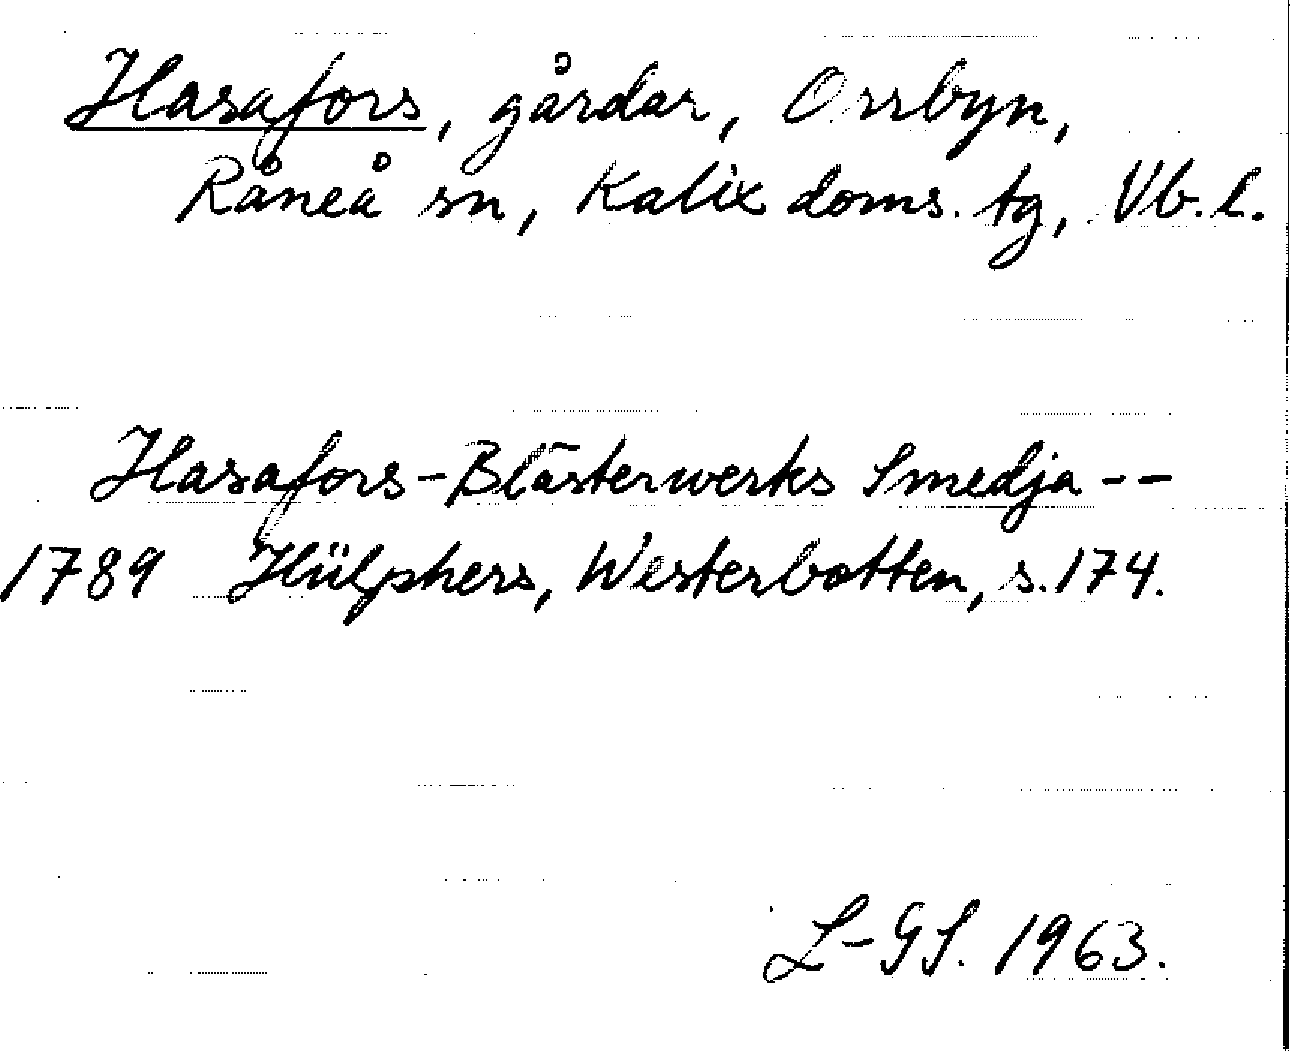 Hasafors, gårdar, Orrbyn,
Råneå sn, Kalix doms. tg, Vb. l.
Hasafors-Blåsterwerks Smedja --
1789 Hülphers, Westerbotten, s. 174.
L-GS. 1963.